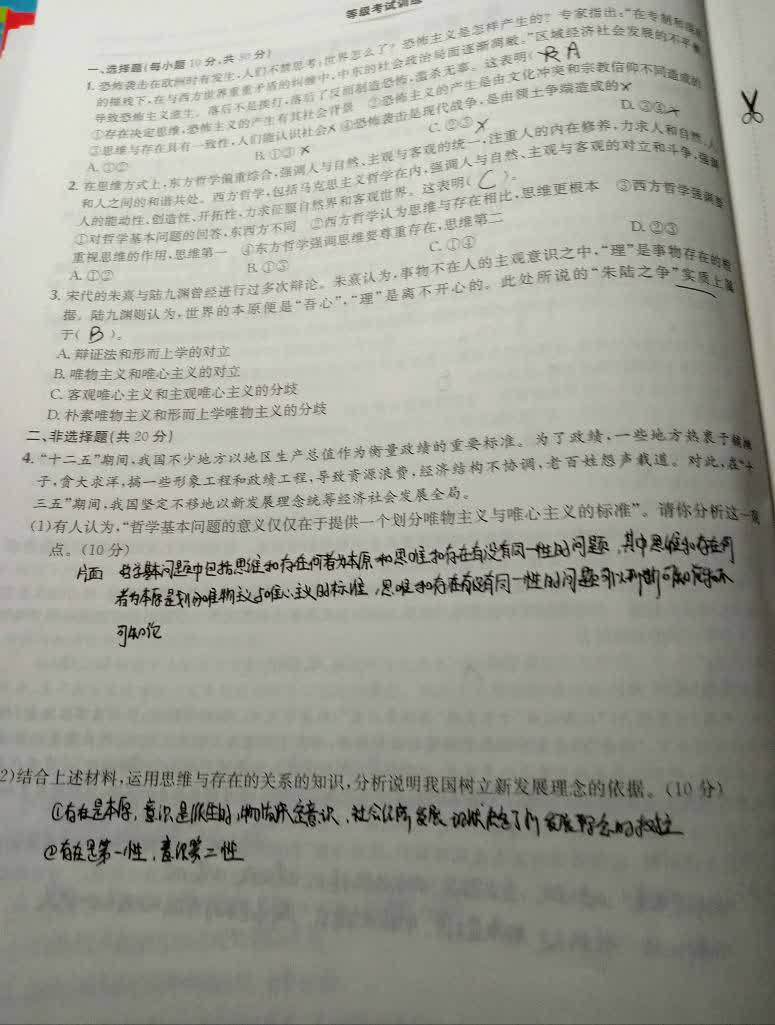 等级考试训练
一、选择题(每小题 10 分,共 30 分)
1. 恐怖袭击在欧洲时有发生,人们不禁思考:世界怎么了?恐怖主义是怎样产生的?专家指出:“在专制和强
的缠线下,在与西方世界重重矛盾的纠缠中,中东的社会政治局面逐渐凋敝。”区域经济社会发展的不平衡
导致恐怖主义滋生。落后不是挨打,落后了反而制造恐怖,滥杀无辜。这表明( A
①存在决定思维,恐怖主义的产生有其社会背景 ②恐怖主义的产生是由文化冲突和宗教信仰不同造成的
③思维与存在具有一致性,人们能认识社会 ④恐怖袭击是现代战争,是由领土争端造成的
A. ①② B. ①③ C. ②③ D. ③④
2. 在思维方式上,东方哲学偏重综合,强调人与自然、主观与客观的统一,注重人的内在修养,力求人和自然、人
和人之间的和谐共处。西方哲学,包括马克思主义哲学在内,强调人与自然、主观与客观的对立和斗争,强调
人的能动性、创造性、开拓性,力求征服自然界和客观世界。这表明( C )。
①对哲学基本问题的回答,东西方不同 ②西方哲学认为思维与存在相比,思维更根本 ③西方哲学强调要
重视思维的作用,思维第一 ④东方哲学强调思维要尊重存在,思维第二
A. ①② B. ①③ C. ①④ D. ②③
3. 宋代的朱熹与陆九渊曾经进行过多次辩论。朱熹认为,事物不在人的主观意识之中,“理”是事物存在的根
据。陆九渊则认为,世界的本原便是“吾心”,“理”是离不开心的。此处所说的“朱陆之争”实质上属
于( B )。
A. 辩证法和形而上学的对立
B. 唯物主义和唯心主义的对立
C. 客观唯心主义和主观唯心主义的分歧
D. 朴素唯物主义和形而上学唯物主义的分歧
二、非选择题(共 20 分)
4. “十二五”期间,我国不少地方以地区生产总值作为衡量政绩的重要标准。为了政绩,一些地方热衷于铺摊
子,贪大求洋,搞一些形象工程和政绩工程,导致资源浪费,经济结构不协调,老百姓怨声载道。对此,在“十
三五”期间,我国坚定不移地以新发展理念统筹经济社会发展全局。
(1)有人认为,“哲学基本问题的意义仅仅在于提供一个划分唯物主义与唯心主义的标准”。请你分析这一观
点。(10 分)
片面 哲学基本问题中包括思维和存在何者为本原和思维和存在有没有同一性的问题,其中思维和存在何
者为本原是划分唯物主义与唯心主义的标准,思维和存在有没有同一性的问题可以判断可知论和不
可知论
2)结合上述材料,运用思维与存在的关系的知识,分析说明我国树立新发展理念的依据。(10 分)
①存在是本原,意识是派生的,物质决定意识,社会经济发展 决定了 发展理念的树立
②存在是第一性,意识第二性